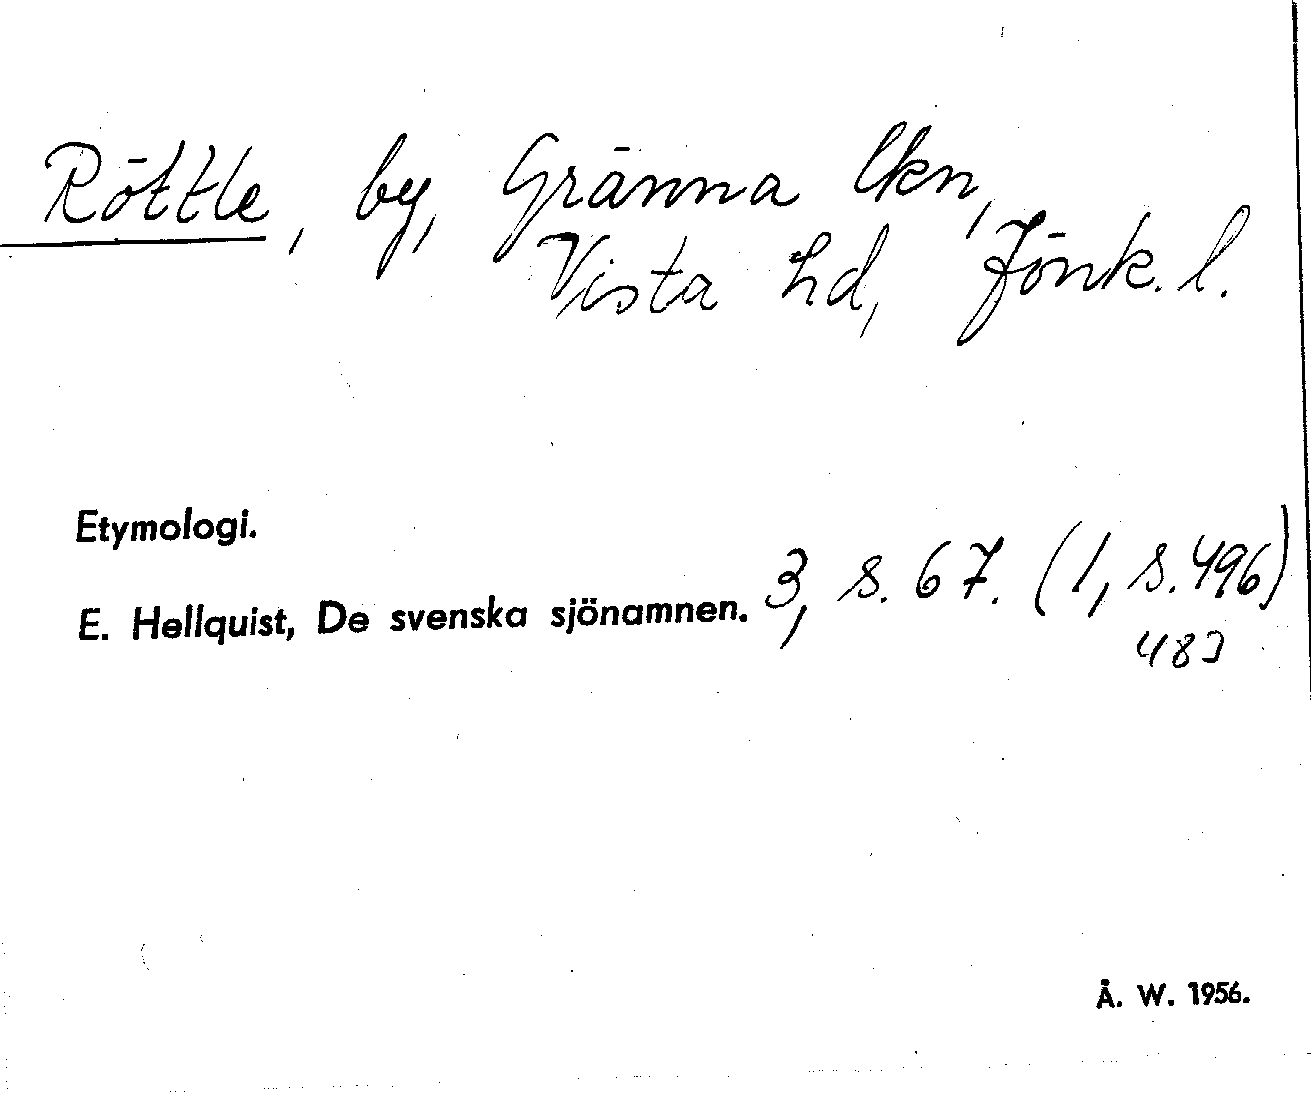 Röttle, by, Gränna lkn,
Vista hd, Jönk. l.
Etymologi.
E. Hellquist, De svenska sjönamnen. 3, s. 67. (1, s. 496)
483
Å. W. 1956.